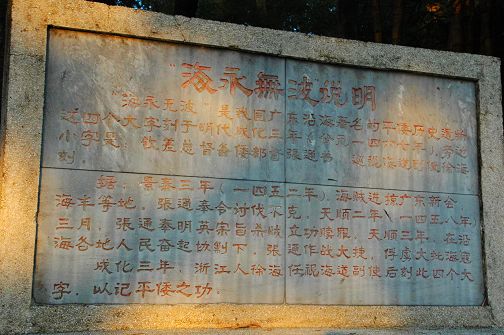 "海永無波"说明
"海永无波"是我国广东沿海著名的平倭历史遗物
这四个大字刻于明代成化 年 一四六七年)，旁
小字是：钦差总督备倭都 张通 巡视海道副 徐海
刻．
据，景泰三年（一四五二年），海贼进掠广东新会、
海丰等地，张通奉令讨伐不克，天顺二年（一四五八年）
三月，张通奉明英宗旨杀贼立功赎罪．天顺三年，在沿
海各地人民奋起协剿下，张通作战大捷，俘虏大批海寇
成化三年，浙江人徐海任视海道副使后刻此四个大
字，以记平倭之功．